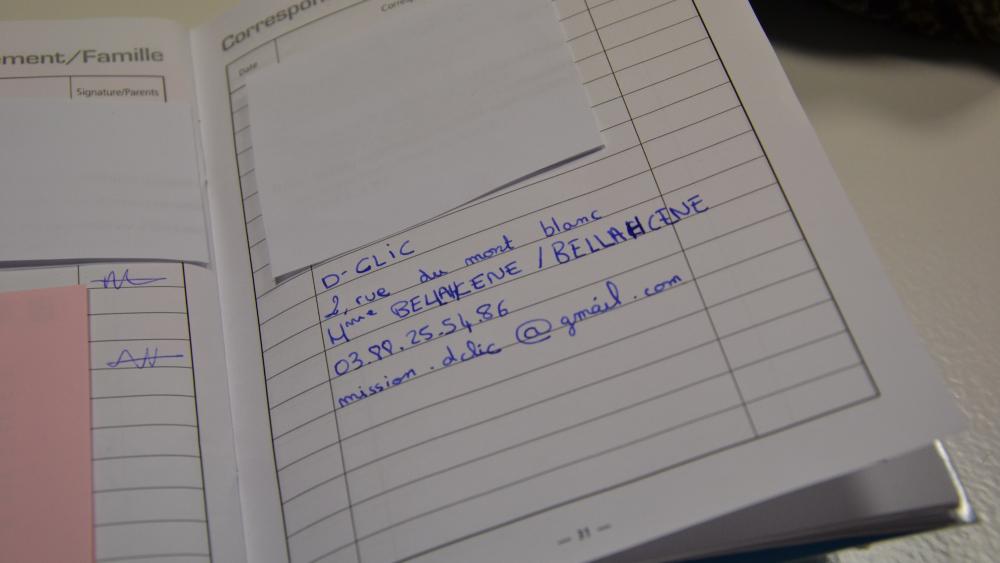 ement/Famille
Signature/Parents
Correspon
Date
Corresp
D-CLIC
2, rue du mont blanc
Mme BELLAHCENE / BELLAHCENE
03.99.25.54.86
mission.dclic@gmail.com
— 31 —